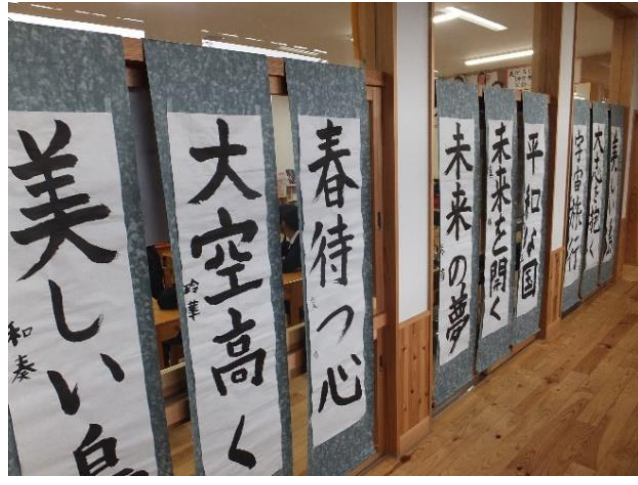 美しい鳥
和奏
大空高く
玲華
春待つ心
未来の夢
未来を開く
平和な国
宇宙旅行
大志を抱く
美しい鳥